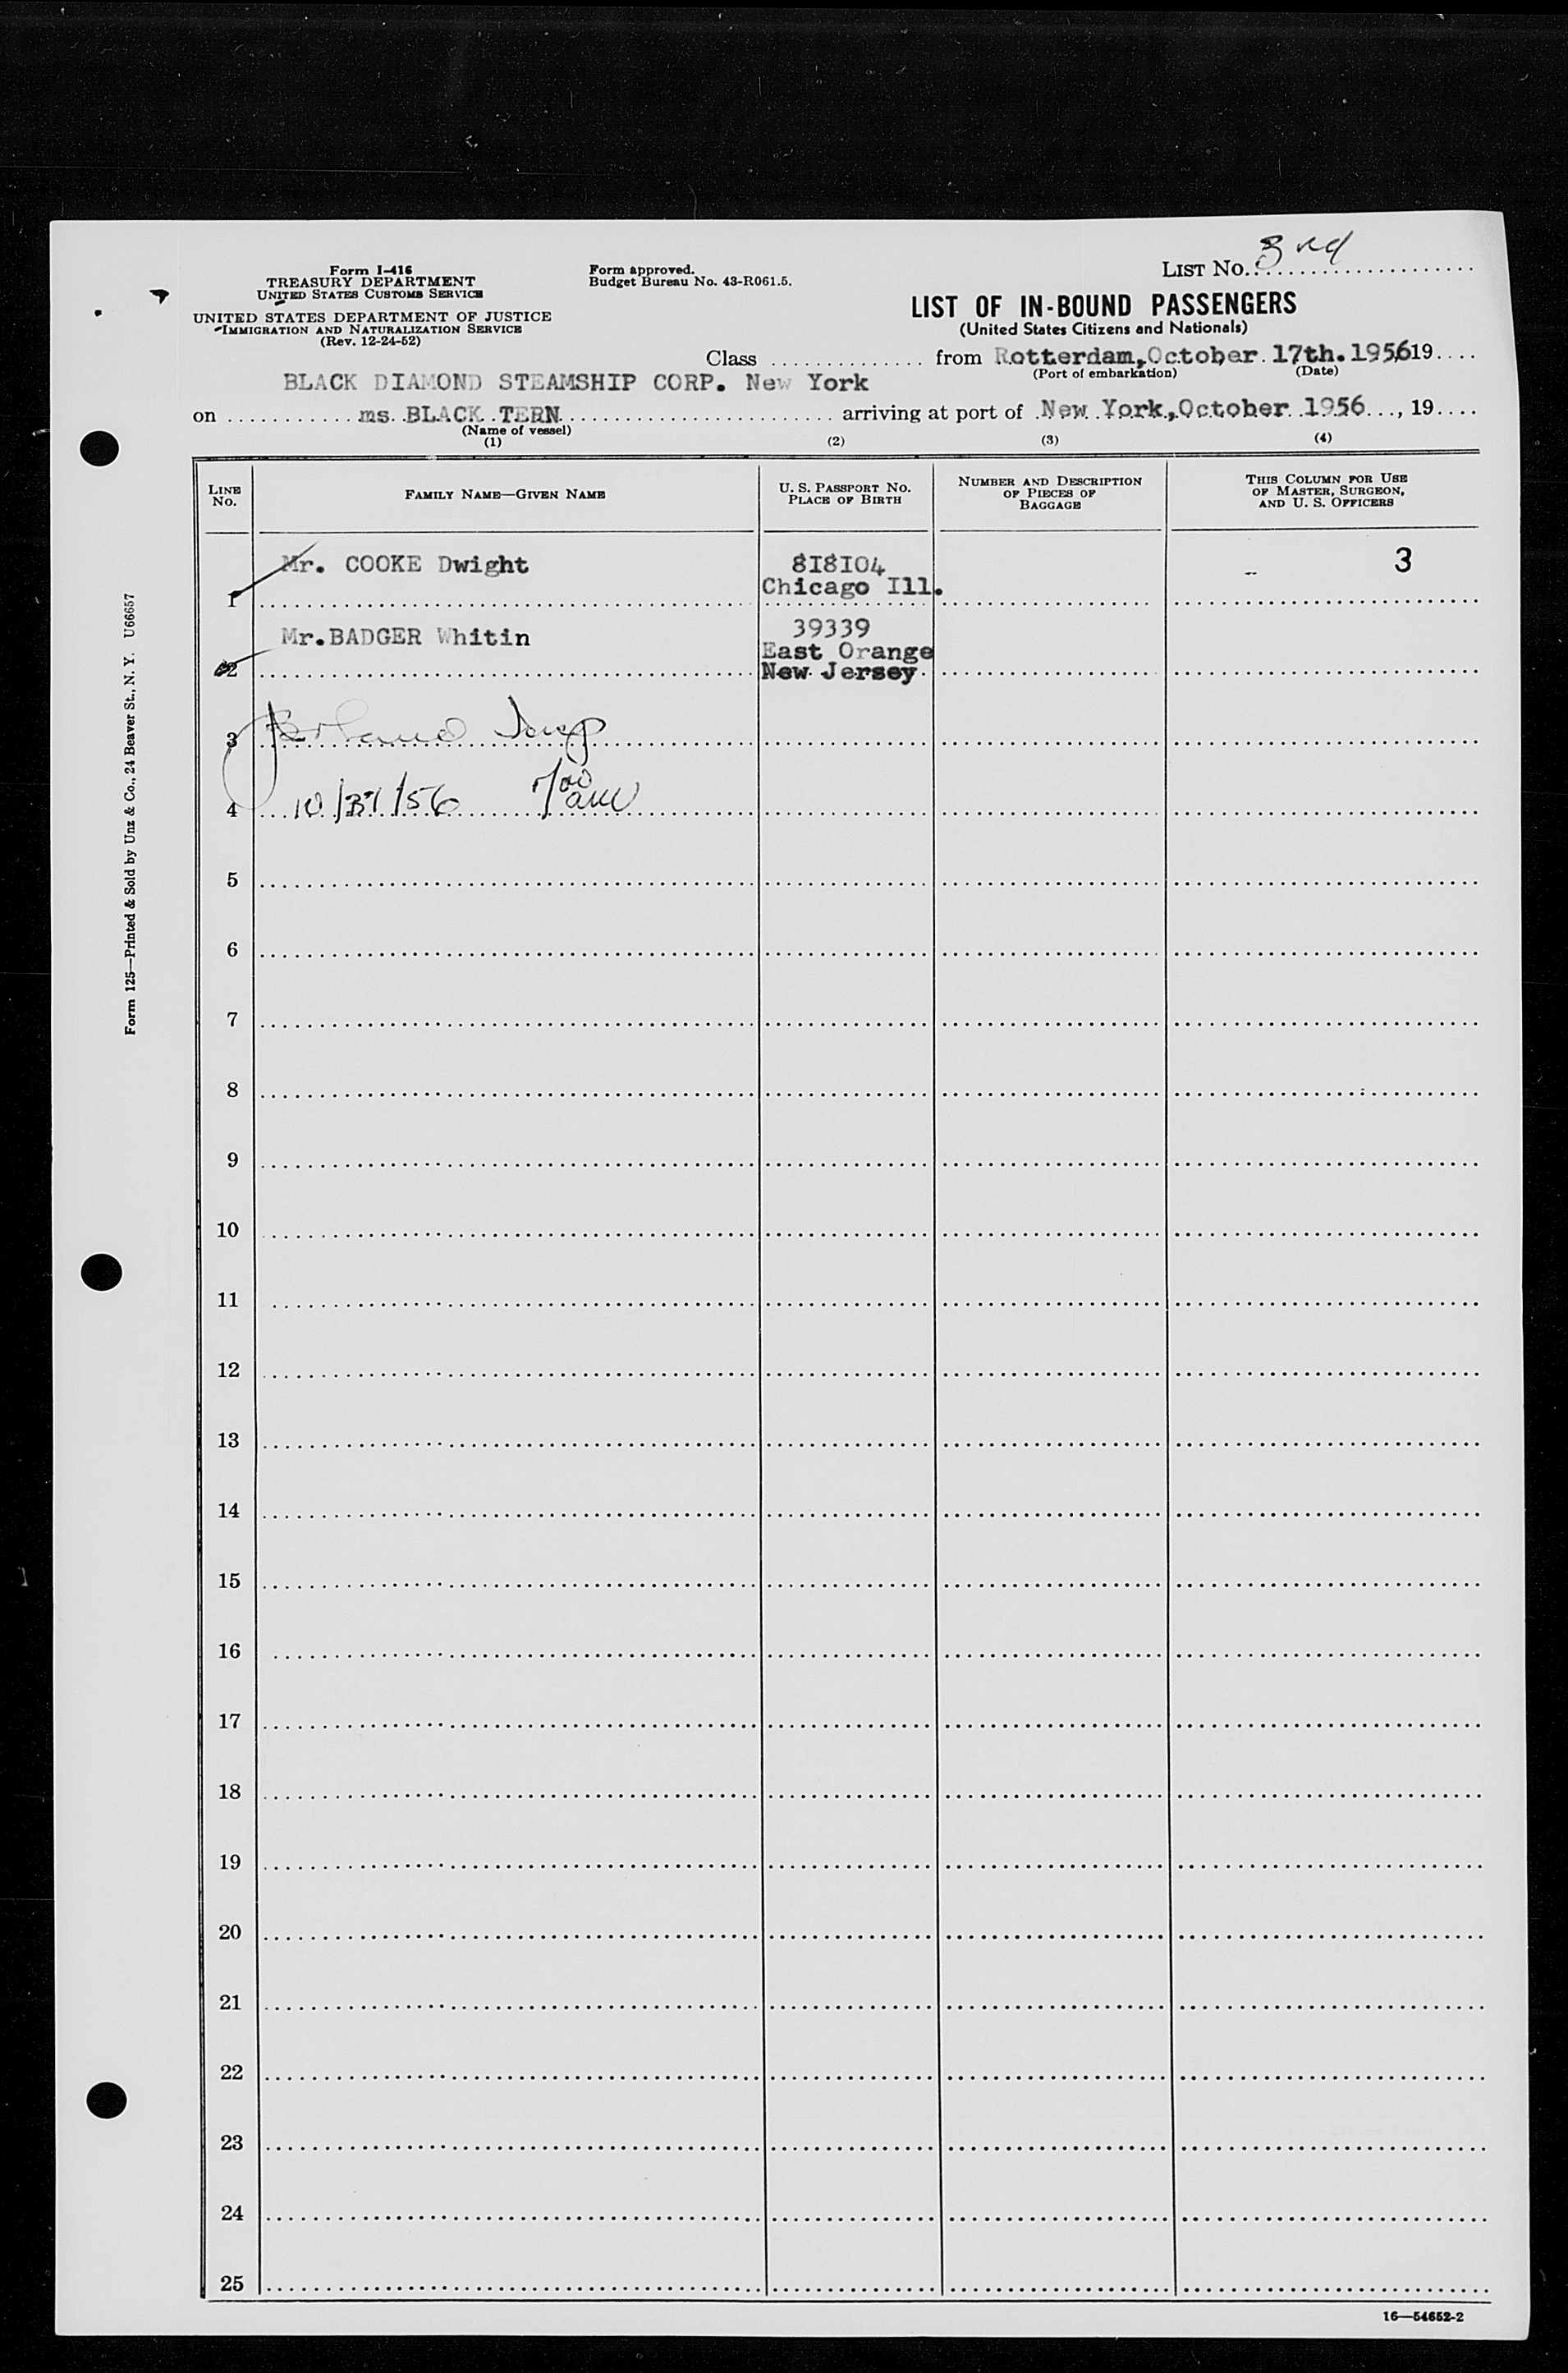 LIST No. 3rd
Form I-416
TREASURY DEPARTMENT
UNITED STATES CUSTOMS SERVICE
UNITED STATES DEPARTMENT OF JUSTICE
IMMIGRATION AND NATURALIZATION SERVICE
(Rev. 12-24-52)
Form approved.
Budget Bureau No. 43-R061.5.
LIST OF IN-BOUND PASSENGERS
(United States Citizens and Nationals)
Class from Rotterdam, October 17th. 1956 19
(Port of embarkation) (Date)
BLACK DIAMOND STEAMSHIP CORP. New York
on ms. BLACK TERN arriving at port of New York, October 1956, 19
(Name of vessel)
(1) (2) (3) (4)
LINE No. FAMILY NAME—GIVEN NAME U. S. PASSPORT No. PLACE OF BIRTH NUMBER AND DESCRIPTION OF PIECES OF BAGGAGE THIS COLUMN FOR USE OF MASTER, SURGEON, AND U. S. OFFICERS
Mr. COOKE Dwight 818104 3
1 Chicago Ill.
Mr. BADGER Whitin 39339
East Orange
2 New Jersey
3
4 10/31/56 7 00 am
5
6
7
8
9
10
11
12
13
14
15
16
17
18
19
20
21
22
23
24
25
16—54652-2
Form 125—Printed & Sold by Unz & Co., 24 Beaver St., N. Y. U66657